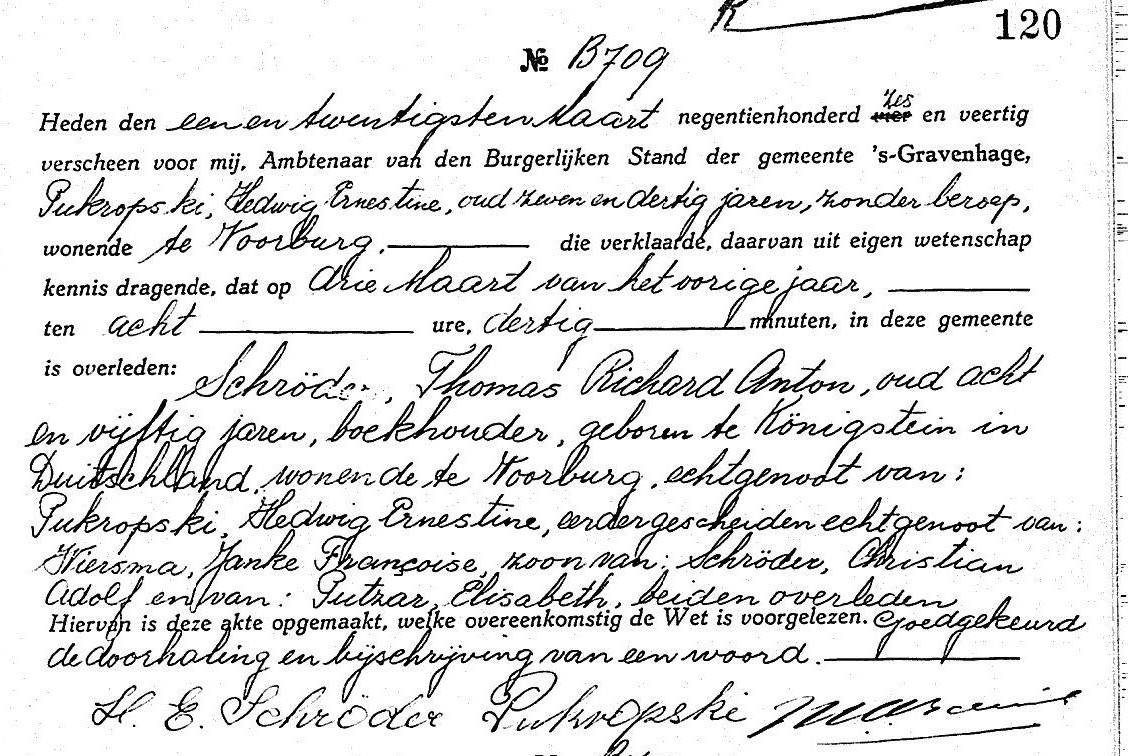 120
№ B709
Heden den een en twentigsten Maart negentienhonderd zes vier en veertig
verscheen voor mij, Ambtenaar van den Burgerlijken Stand der gemeente 's-Gravenhage,
Pukropski, Hedwig Ernestine, oud zeven en dertig jaren, zonder beroep,
wonende te Voorburg, die verklaarde, daarvan uit eigen wetenschap
kennis dragende, dat op drie Maart van het vorige jaar,
ten acht ure, dertig minuten, in deze gemeente
is overleden: Schröder, Thomas Richard Anton, oud acht
en vijftig jaren, boekhouder, geboren te Königstein in
Duitschland, wonende te Voorburg, echtgenoot van:
Pukropski, Hedwig Ernestine, eerder gescheiden echtgenoot van:
Wiersma, Janke Françoise, zoon van: Schröder, Christian
Adolf en van: Putzar, Elisabeth, beiden overleden
Hiervan is deze akte opgemaakt, welke overeenkomstig de Wet is voorgelezen. Goedgekeurd
de doorhaling en bijschrijving van een woord.
H. E. Schröder Pukropski